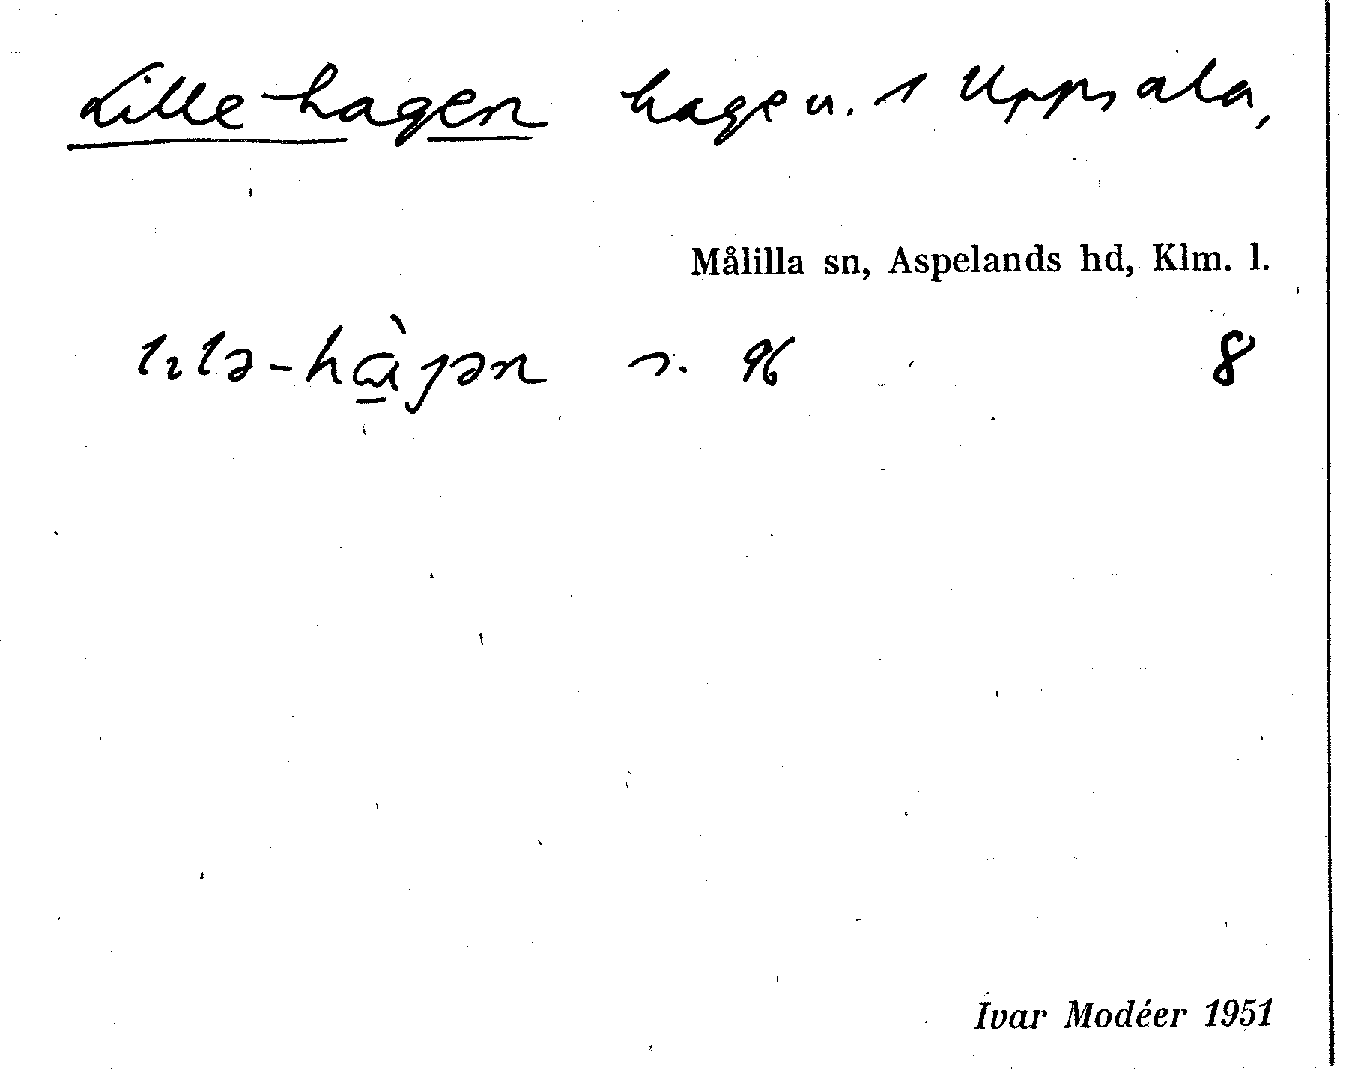 Lillehagen hagen. 1 Uppsala,
Målilla sn, Aspelands hd, Klm. l.
lılə-hàgən s. 96 8
Ivar Modéer 1951